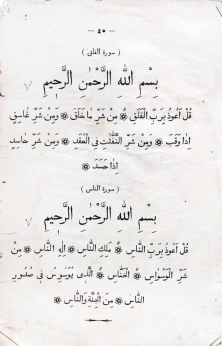 — ٤٥ —
( سورة الفلق )
بِسْمِ اللهِ الرَّحْمٰنِ الرَّحِيْمِ
قُلْ اَعُوْذُ بِرَبِّ الْفَلَقِ ❋ مِنْ شَرِّ مَا خَلَقَ ❋ وَمِنْ شَرِّ غَاسِقٍ
اِذَا وَقَبَ ❋ وَمِنْ شَرِّ النَّفّٰثٰتِ فِى الْعُقَدِ ❋ وَمِنْ شَرِّ حَاسِدٍ
اِذَا حَسَدَ ❋
( سورة الناس )
بِسْمِ اللهِ الرَّحْمٰنِ الرَّحِيْمِ
قُلْ اَعُوْذُ بِرَبِّ النَّاسِ ❋ مَلِكِ النَّاسِ ❋ اِلٰهِ النَّاسِ ❋ مِنْ
شَرِّ الْوَسْوَاسِ ❋ الْخَنَّاسِ ❋ اَلَّذِى يُوَسْوِسُ فِى صُدُوْرِ
النَّاسِ ❋ مِنَ الْجِنَّةِ وَالنَّاسِ ❋